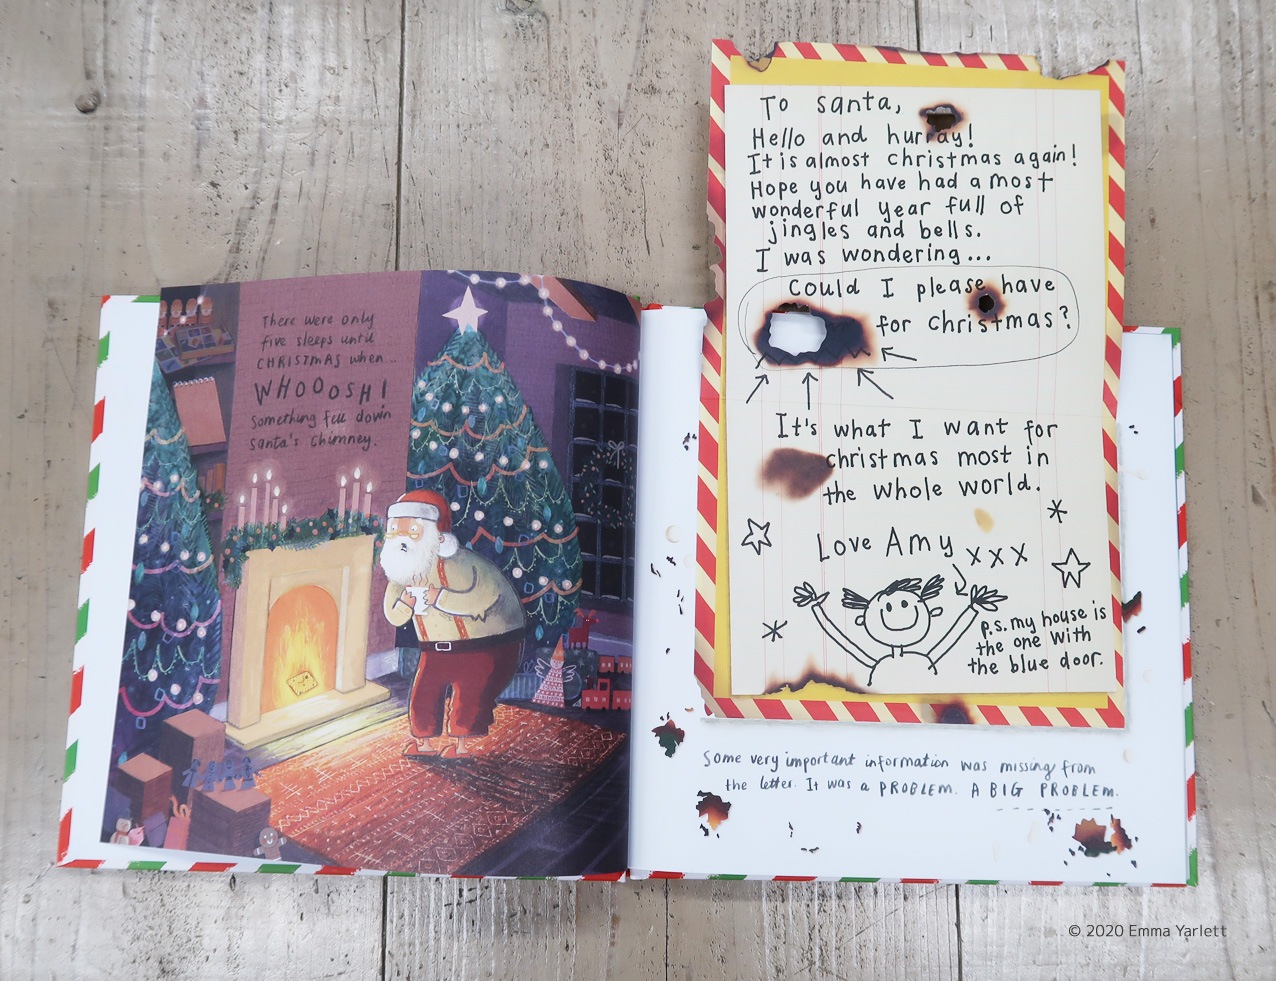 There were only
five sleeps until
CHRISTMAS when...
WHOOOSH!
Something fell down
Santa's chimney.
To santa,
Hello and hurray!
It is almost christmas again!
Hope you have had a most
wonderful year full of
jingles and bells.
I was wondering...
Could I please have
for christmas?
It's what I want for
christmas most in
the whole world.
Love Amy xxx
p.s. my house is
the one with
the blue door.
Some very important information was missing from
the letter. It was a PROBLEM. A BIG PROBLEM.
© 2020 Emma Yarlett